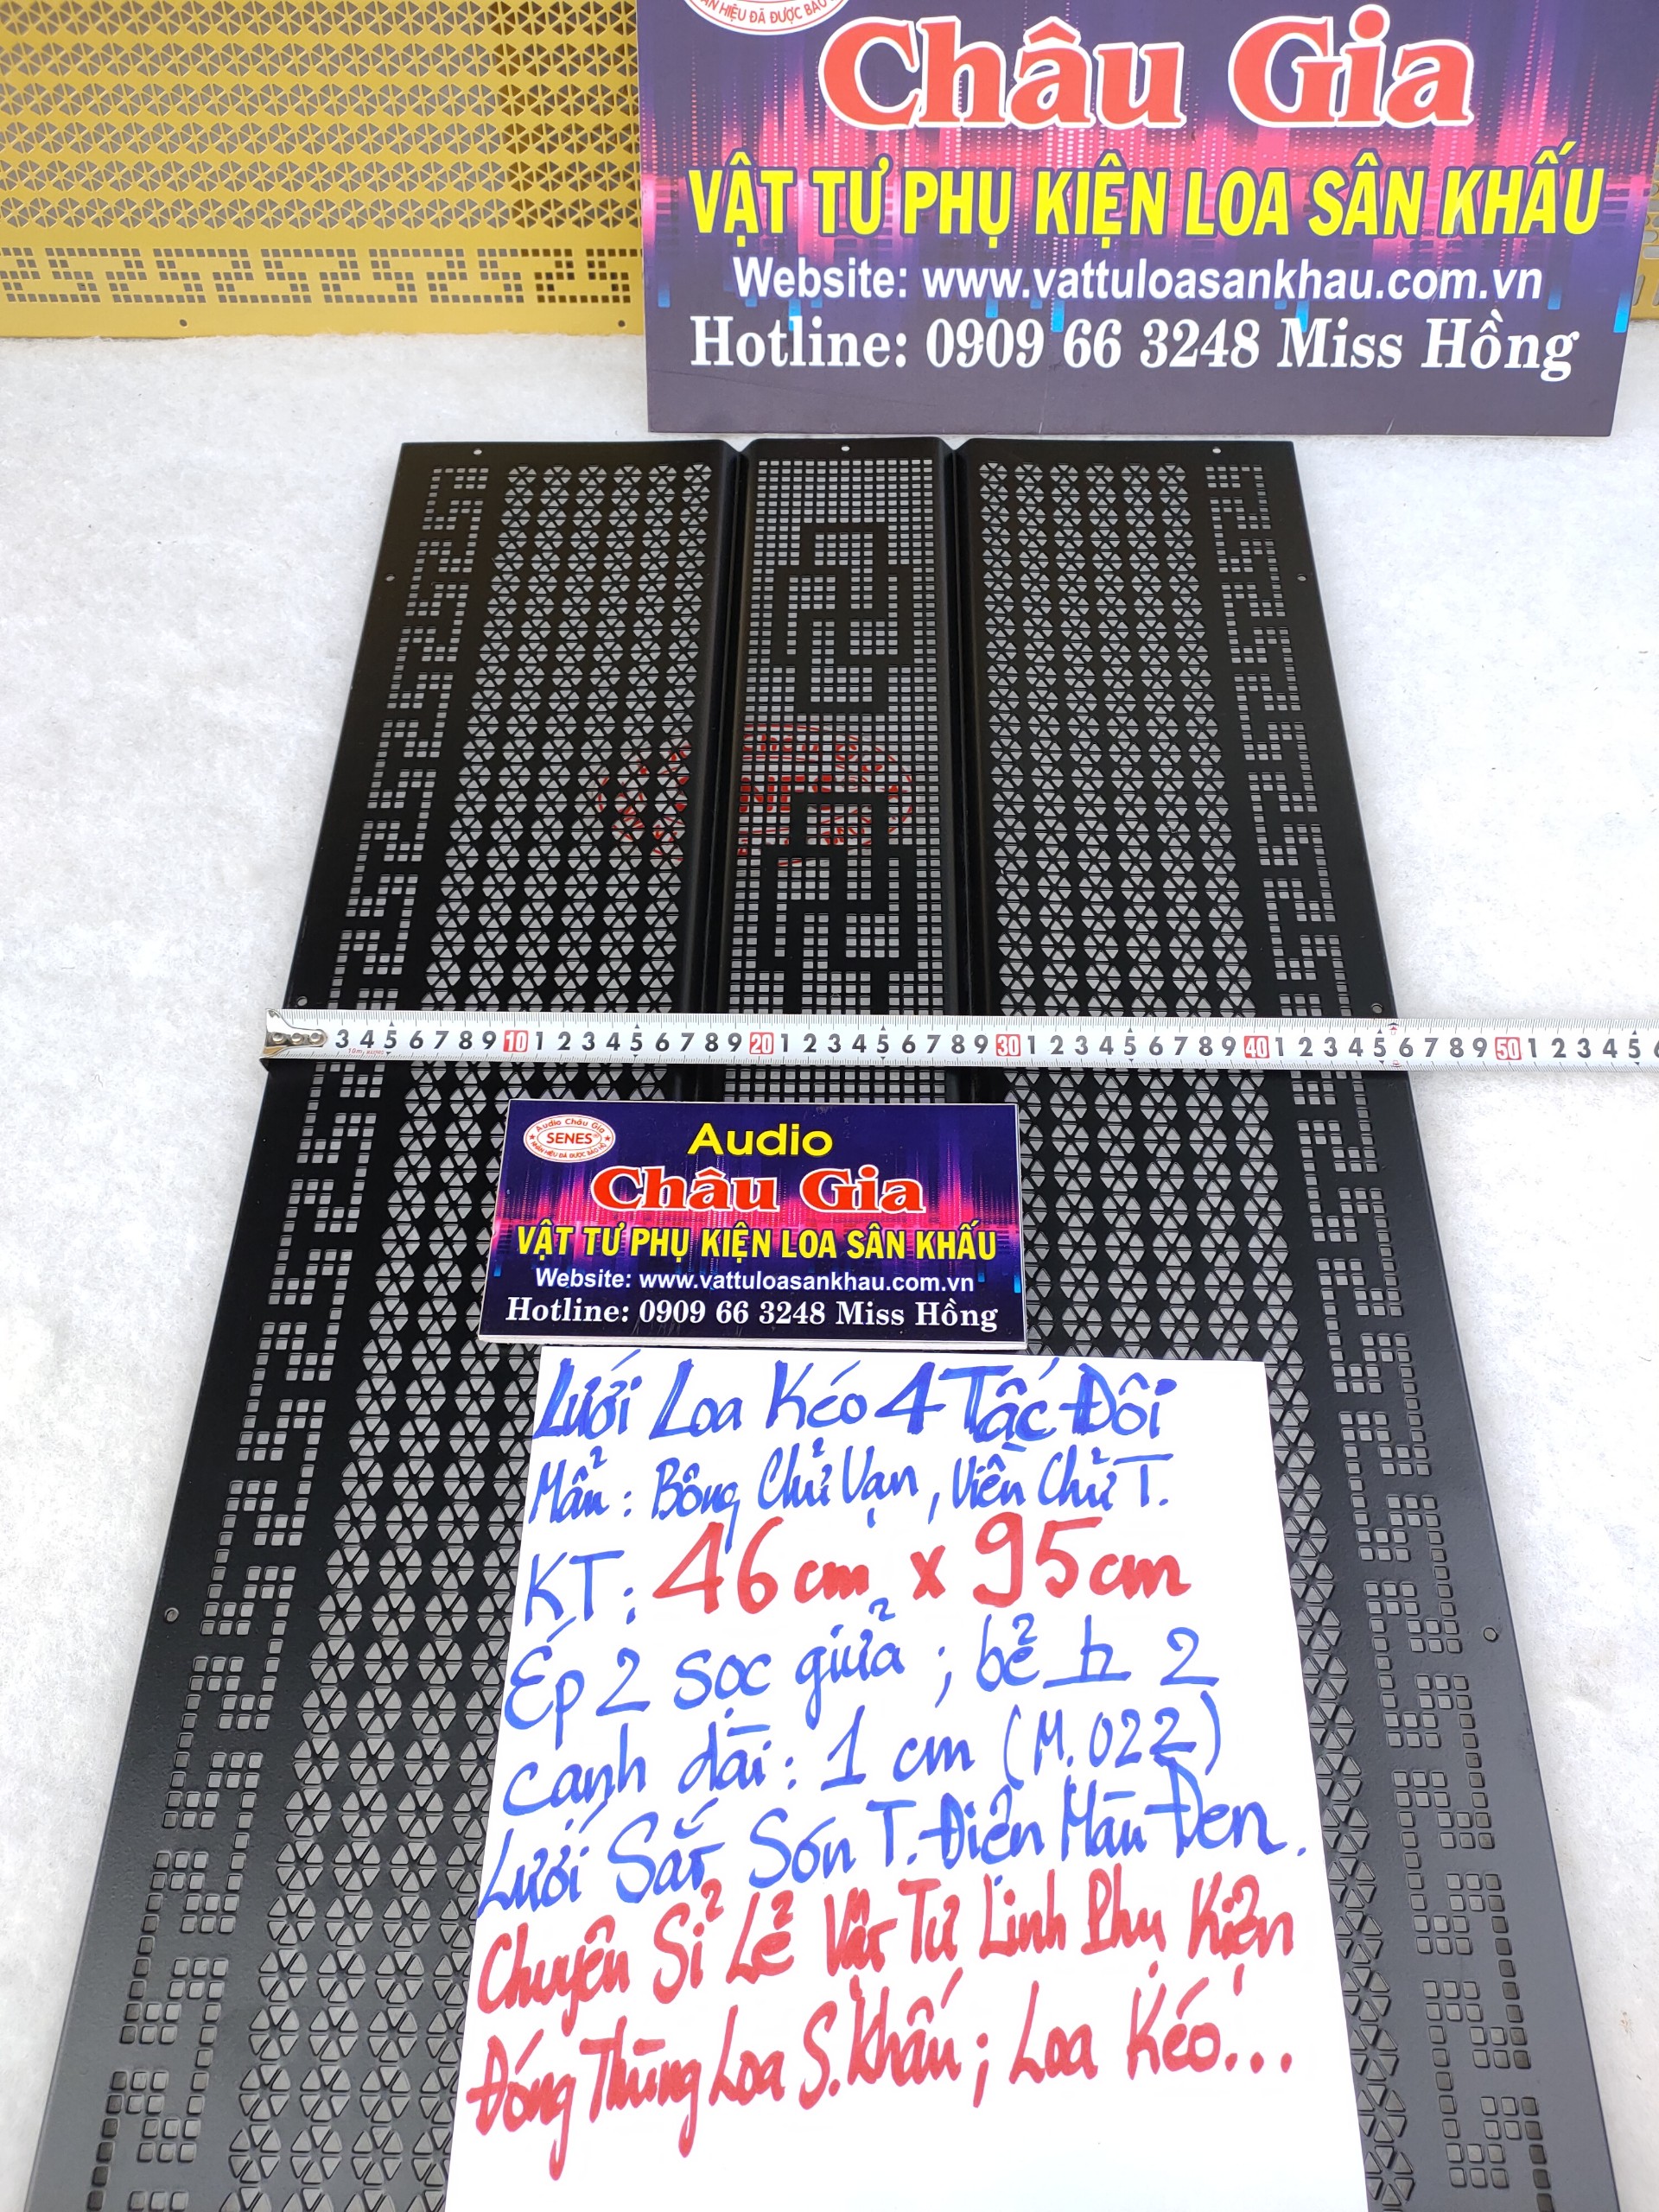 NHÃN HIỆU ĐÃ ĐƯỢC BẢO
Châu Gia
VẬT TƯ PHỤ KIỆN LOA SÂN KHẤU
Website: www.vattuloasankhau.com.vn
Hotline: 0909 66 3248 Miss Hồng
3 4 5 6 7 8 9 10 1 2 3 4 5 6 7 8 9 20 1 2 3 4 5 6 7 8 9 30 1 2 3 4 5 6 7 8 9 40 1 2 3 4 5 6 7 8 9 50 1 2 3 4 5 6
Audio Châu Gia
SENES®
NHÃN HIỆU ĐÃ ĐƯỢC BẢO HỘ
Audio
Châu Gia
VẬT TƯ PHỤ KIỆN LOA SÂN KHẤU
Website: www.vattuloasankhau.com.vn
Hotline: 0909 66 3248 Miss Hồng
Lưới Loa Kéo 4 Tấc Đôi
Mẩu: Bông Chử Vạn, Viền Chử T.
KT: 46cm x 95cm
Ép 2 sọc giửa; bẻ h 2
cạnh dài: 1 cm (M.022)
Lưới Sắt Sơn T.Điện Màu Đen.
Chuyên Sỉ Lẻ Vật Tư Linh Phụ Kiện
Đóng Thùng Loa S.Khấu; Loa Kéo...